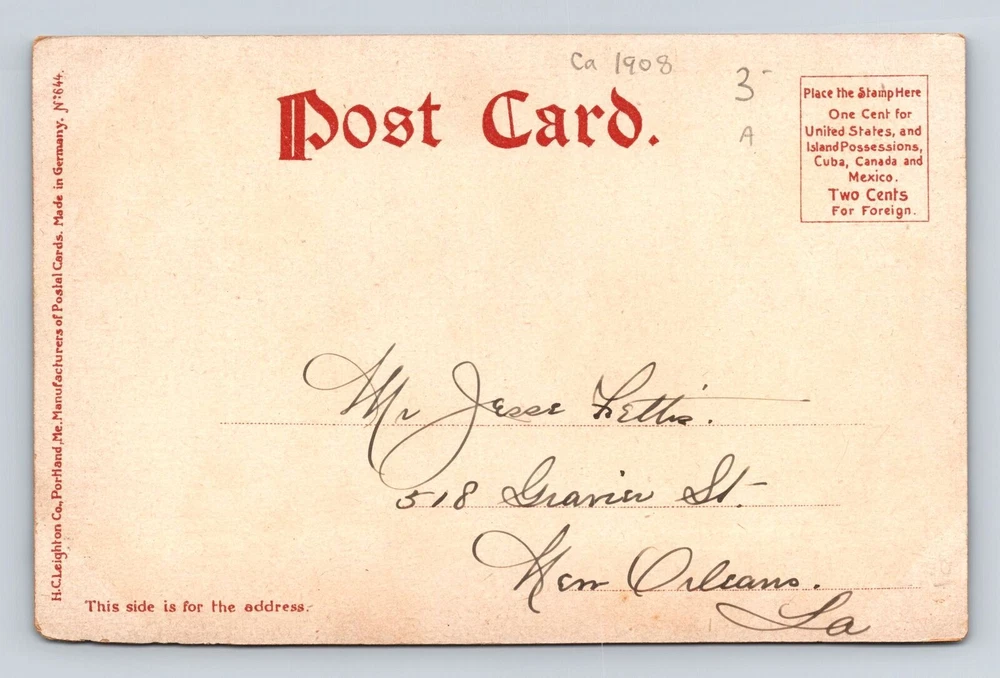 Ca 1908
3-
A
Post Card.
Place the Stamp Here
One Cent for
United States, and
Island Possessions,
Cuba, Canada and
Mexico.
Two Cents
For Foreign.
H.C. Leighton Co., Portland, Me. Manufacturers of Postal Cards. Made in Germany. No 644.
Mr Jesse
518 Gravier St.
New Orleans.
La
This side is for the address.